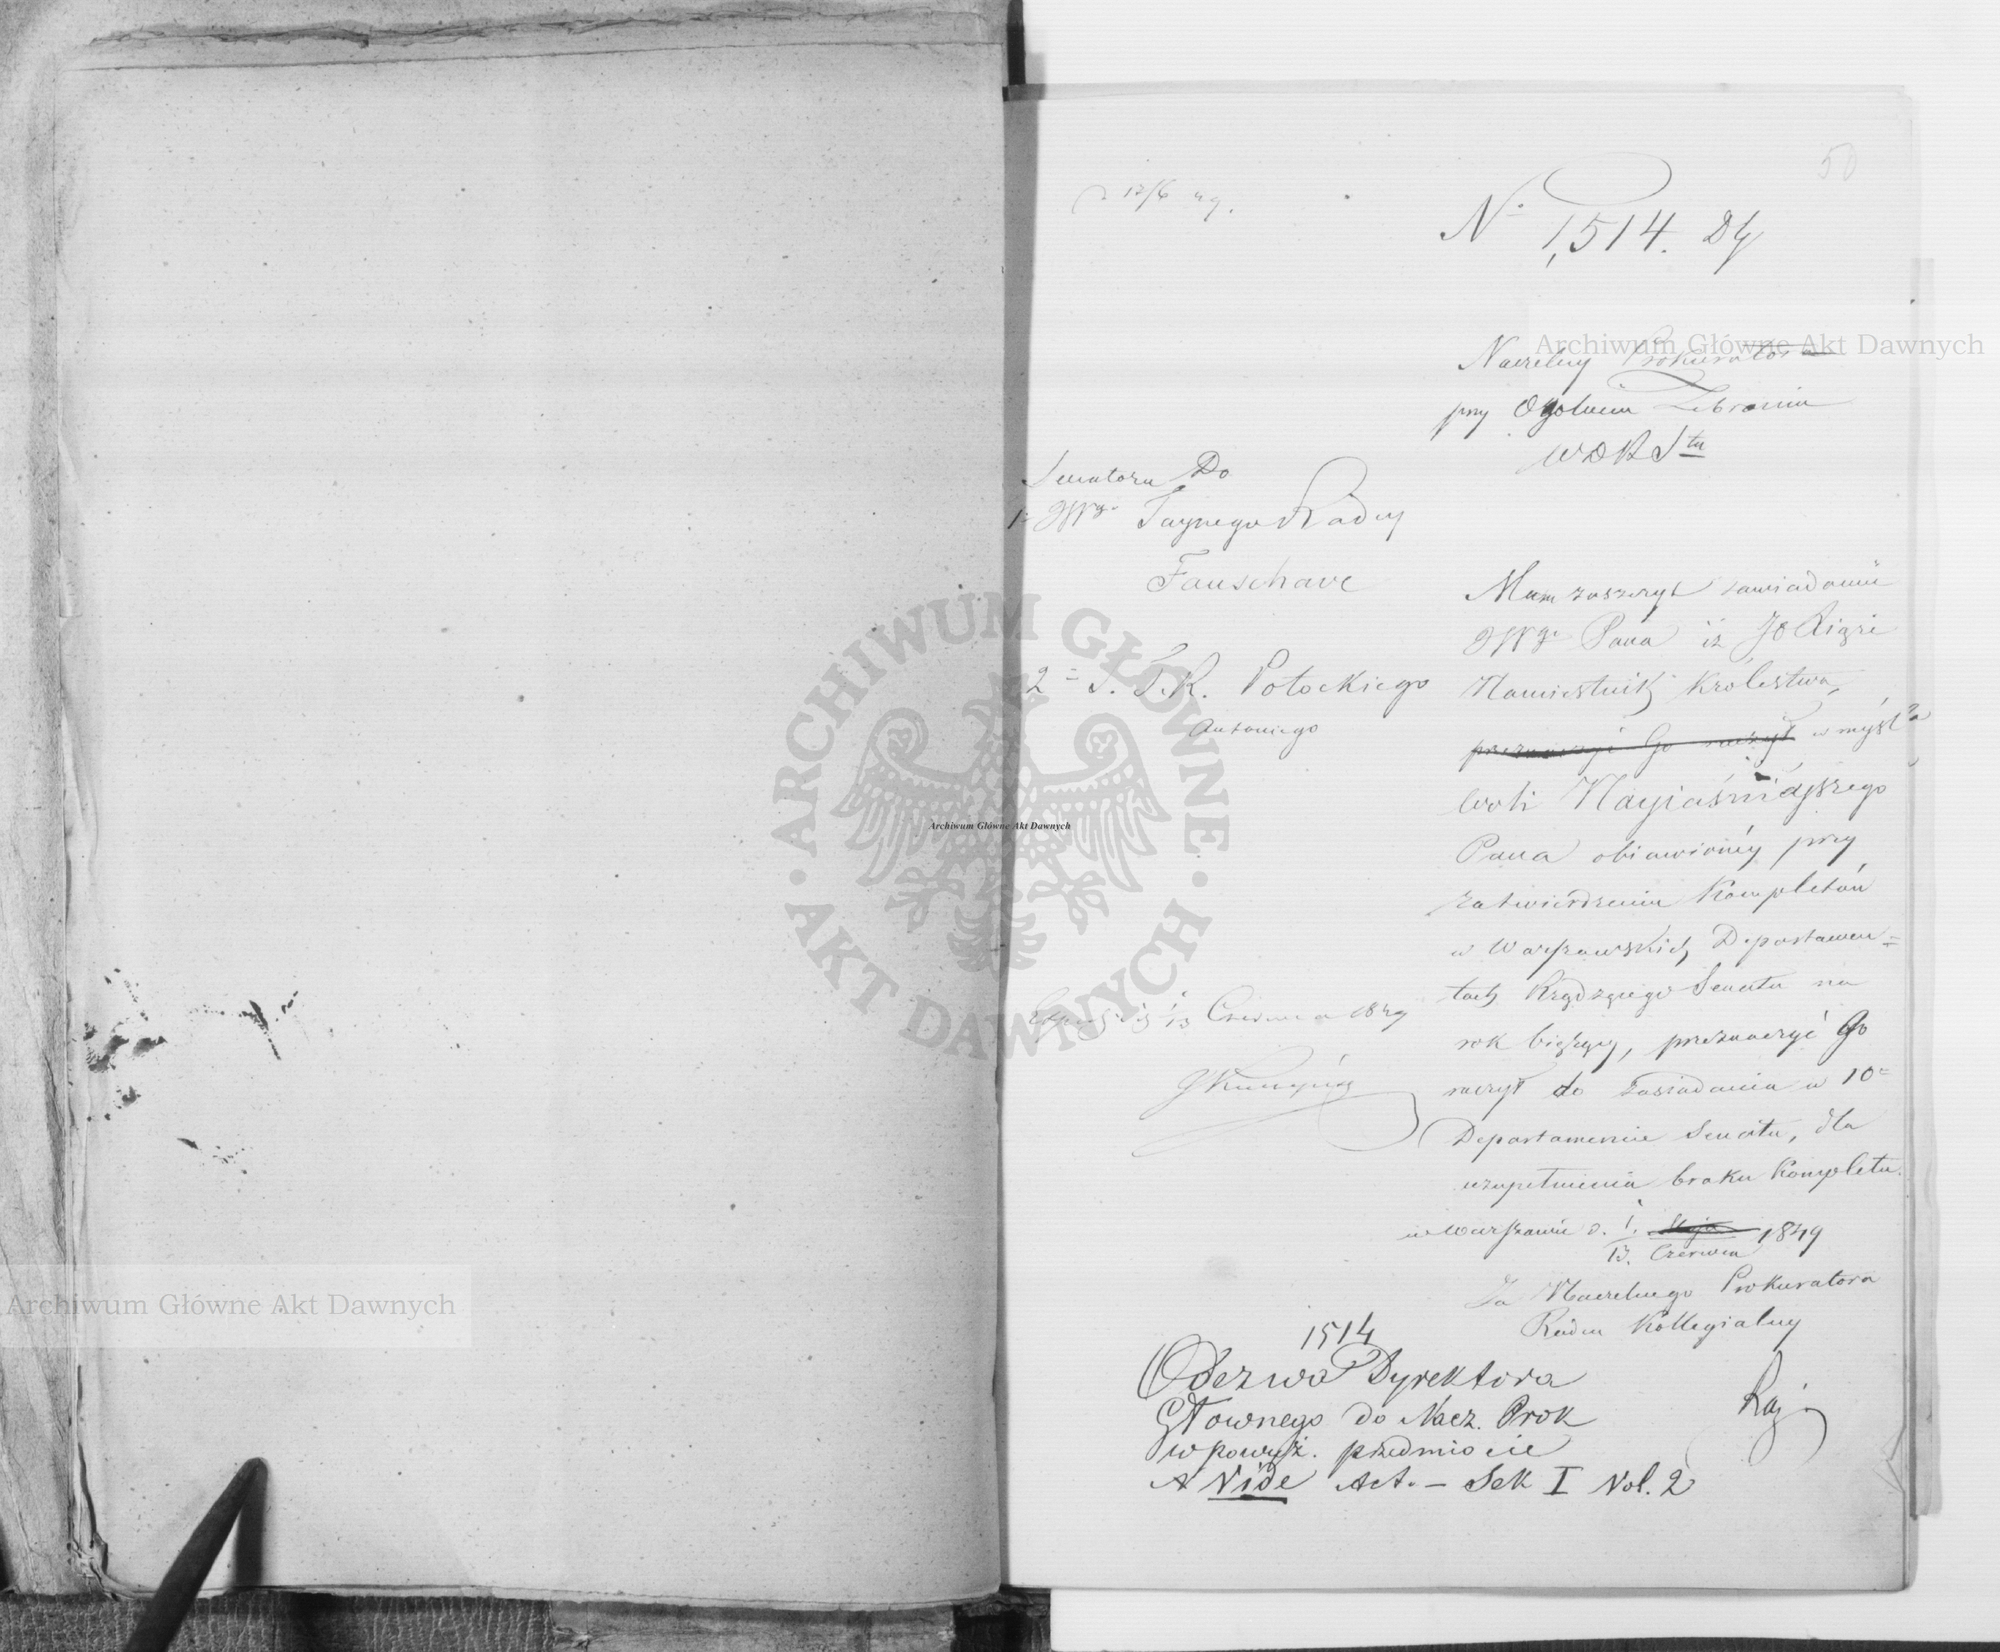 50
12/6 49.
No 1,514. Dy
Naczelny Prokurator
przy Ogolnem Zebraniu
WDRStu
Senatora Do
1= JWgo Taynego Radcy
Fanschave
2= S. T.R. Potockiego
Antoniego
Mam zaszczyt zawiadomić
JWgo Pana iż JO Xiąże
Namiestnik Królestwa,
przeznaczyć Go raczył w myśl
Woli Nayjaśnieyszego
Pana obiawioney przy
zatwierdzeniu Kompletów
w Warszawskich Departamen=
tach Rządzącego Senatu na
rok bieżący, przeznaczyć Go
raczył do zasiadania w 10=
Departamencie Senatu, dla
uzupełnienia braku Kompletu.
w Warszawie d. 1/13. Maja Czerwca 1849
Za Naczelnego Prokuratora
Radca Kollegialny
1/13 Czerwca 1849
1514
Odezwa Dyrektora
Głownego do Nacz. Prok
w powyż. przedmiocie
Vide Act. - Sek I Vol. 2
Archiwum Główne Akt Dawnych
Archiwum Główne Akt Dawnych
Archiwum Główne Akt Dawnych
ARCHIWUM GŁÓWNE · AKT DAWNYCH ·